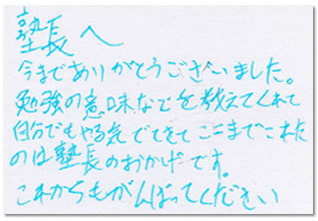 塾長へ
今までありがとうございました。
勉強の意味などを教えてくれて
自分でもやる気でてきてここまでこれた
のは塾長のおかげです。
これからもがんばってください